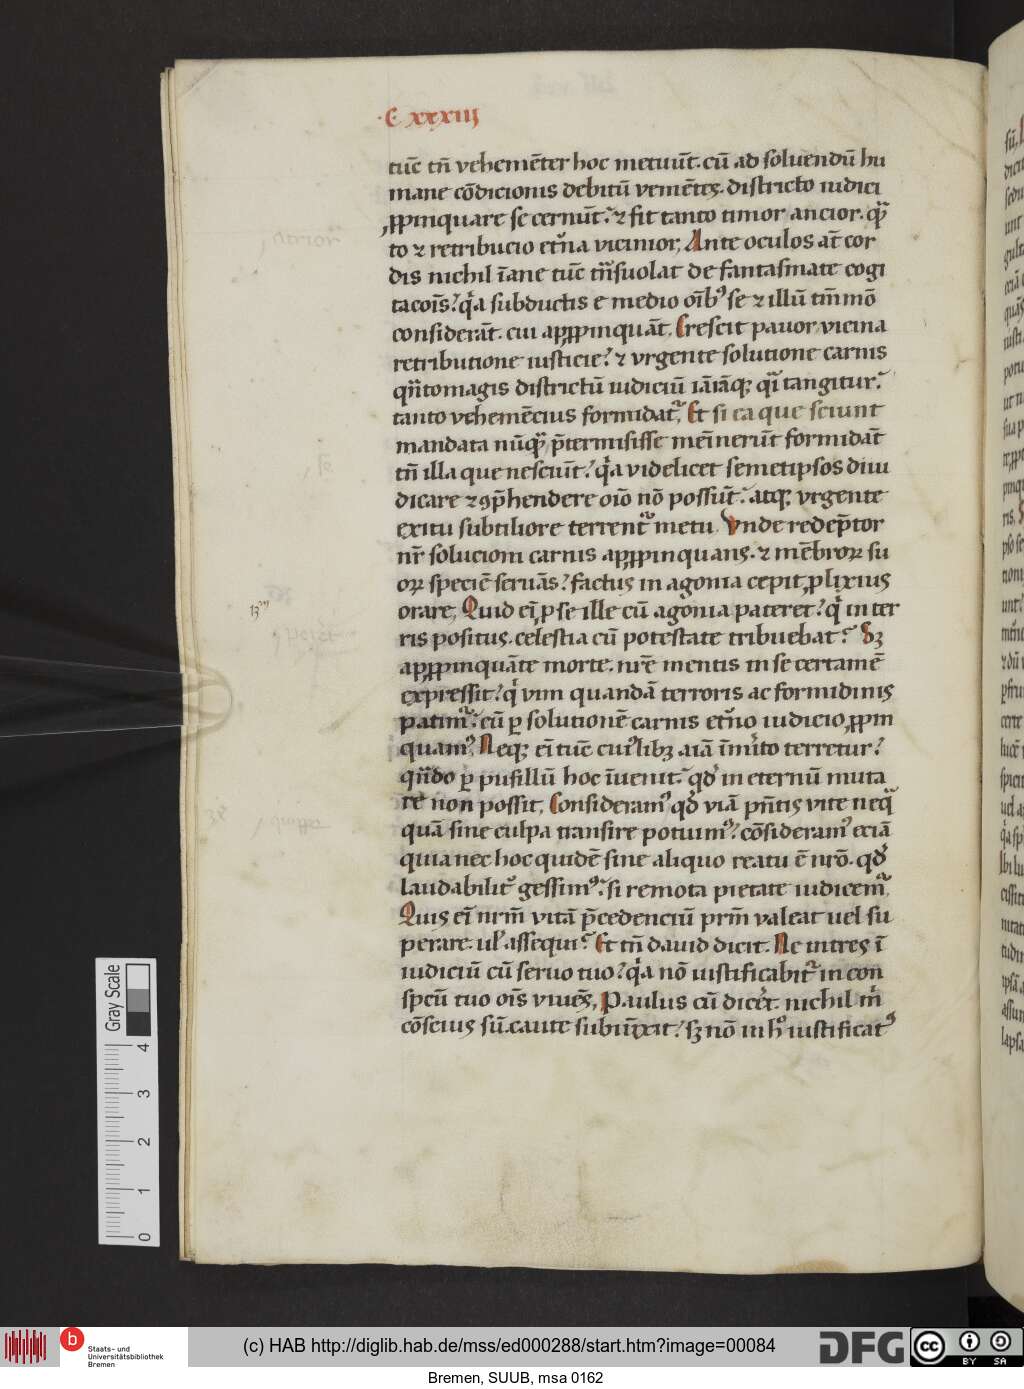 ·C· xxxiii
tūc tn̄ vehemēter hoc metuūt. cū ad soluendū hu
mane cōdicionis debitū vemētes. districto iudici
ꝓpinquare se cernūt. ⁊ fit tanto timor ancior. qͣ̄
to ⁊ retribucio et̄na vicinior, Ante oculos at̄ cor
dis nichil īane tūc tn̄suolat de fantasmate cogi
tacōīs. qͥa subductis e medio oīb⁹ se ⁊ illū tm̄mō
considerāt. cui apꝓpinquāt. Crescit pauor vicina
retributione iusticie. ⁊ vrgente solutione carnis
qn̄tomagis districtū iudiciū iāiāqꝫ qͣi tangitur.
tanto vehemēcius formidat᷑. Et si ea que sciunt
mandata nūqͣ̄ p̄termisisse mēinerūt formidāt
tn̄ illa que nesciūt. qͥa videlicet semetipsos diiu
dicare ⁊ ꝯp̄hendere oīo nō possūt. atqꝫ vrgente
exitu subtiliore terrent᷑ metu. Vnde redēptor
nr̄ solucioni carnis apꝓpinquans. ⁊ mēbroꝝ su
oꝝ speciē seruās. factus in agonia cepit ꝓlixius
orare. Quid ei ꝓ se ille cū agonia pateret. qͥ in ter
ris positus. celestia cū potestate tribuebat. Sꝫ
apꝓpinquāte morte. nr̄e mentis in se certamē
expressit. qͥ vim quandā terroris ac formidinis
patim᷑. cū ꝑ solutionē carnis et̄no iudicio ꝓpin
quam⁹. Neqꝫ ei tūc cui⁹libꝫ aīā īm̄ito terretur.
qn̄do ꝑ pusillū hoc īuenit. qd̄ in eternū muta
re non possit. Consideram⁹ qd̄ viā pn̄tis vite neqͣ
quā sine culpa transire potuim⁹. cōsideram⁹ eciā
quia nec hoc quidē sine aliquo reatu ē nr̄o. qd̄
laudabilit᷑ gessim⁹. si remota pietate iudicem᷑.
Quis ei nr̄m vitā p̄cedenciū pr̄m valeat uel su
perare. ul̓ assequi. Et tn̄ dauid dicit. Ne intres ī
iudiciū cū seruo tuo. qͥa nō iustificabit᷑ in con
spcū tuo oīs viuēs. Paulus cū dicēt. nichil mͥ
cōscius sū. caute subiūxit. sꝫ nō in h° iustificat⁹
Gray Scale
0 1 2 3 4
b
Staats- und
Universitätsbibliothek
Bremen
(c) HAB http://diglib.hab.de/mss/ed000288/start.htm?image=00084
DFG
cc BY SA
Bremen, SUUB, msa 0162